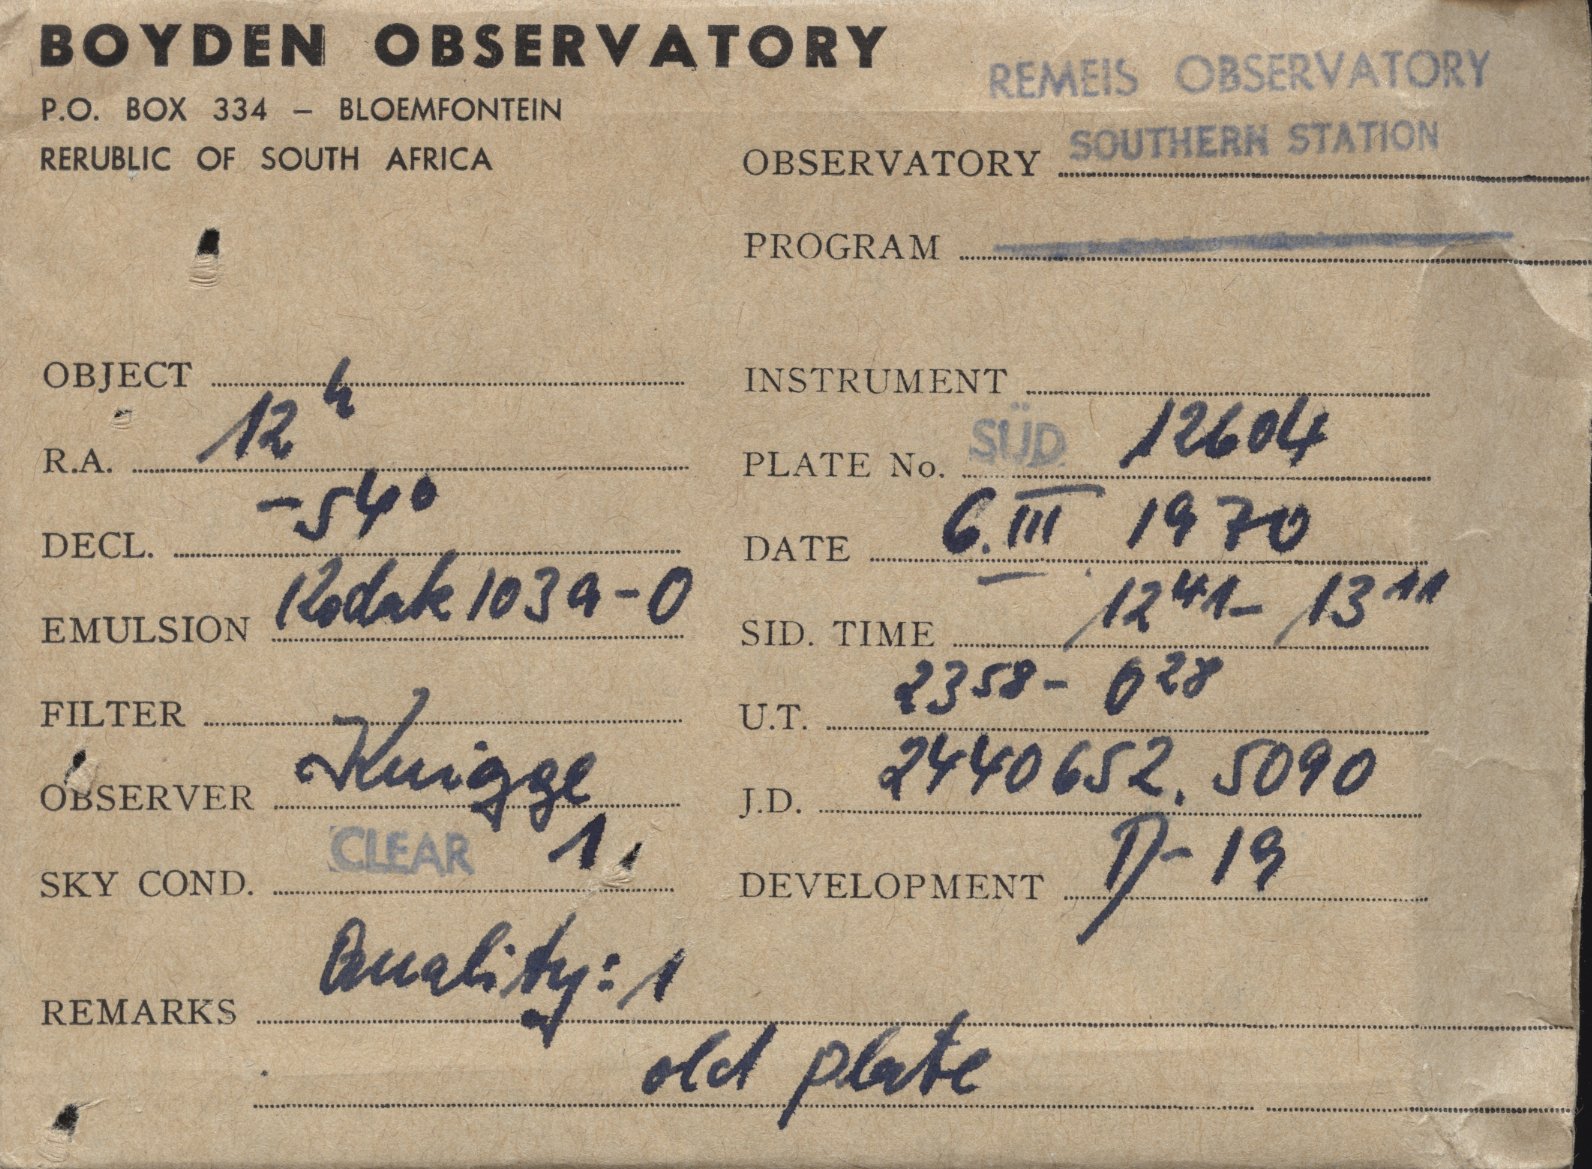 BOYDEN OBSERVATORY
P.O. BOX 334 – BLOEMFONTEIN
RERUBLIC OF SOUTH AFRICA
REMEIS OBSERVATORY
OBSERVATORY SOUTHERN STATION
PROGRAM
OBJECT
R.A. 12h
DECL. -54°
EMULSION Kodak 103a-O
FILTER
OBSERVER Knigge
SKY COND. CLEAR 1
INSTRUMENT
PLATE No. SÜD 12604
DATE 6. III 1970
SID. TIME 12 41 - 13 11
U.T. 23 58 - 0 28
J.D. 2440652.5090
DEVELOPMENT D-19
REMARKS Quality: 1
old plate